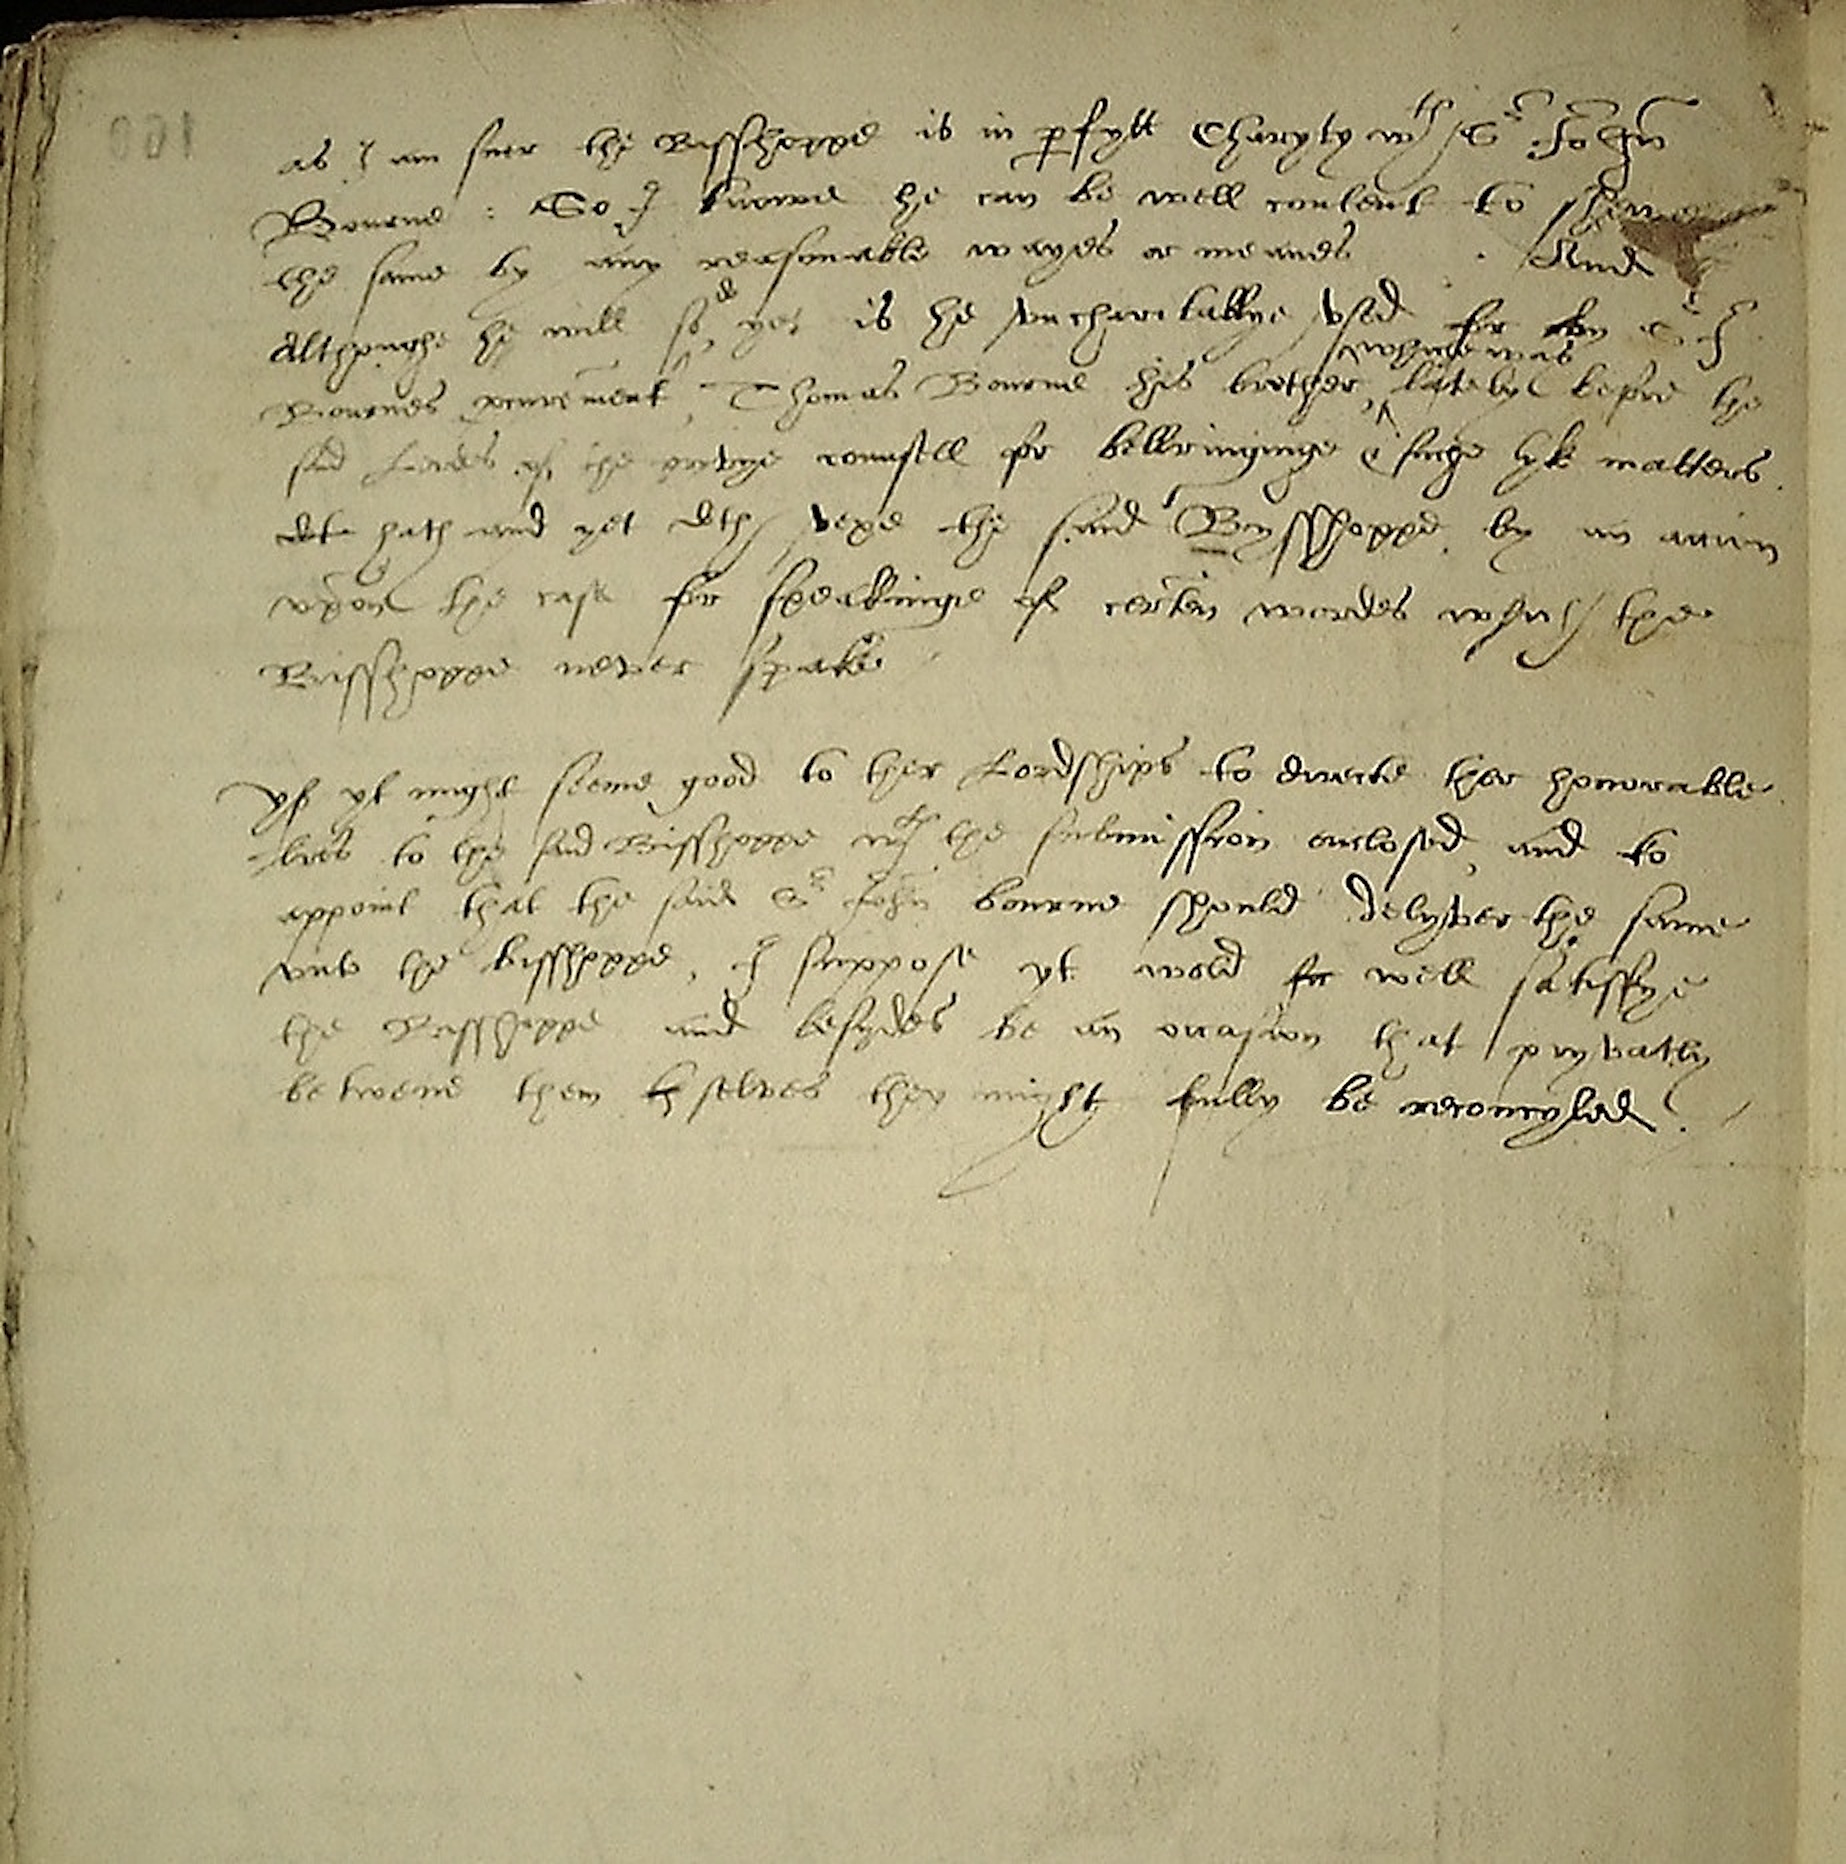 as I am suer the Bisshoppe is in p̱fytt Charyty wth Sr John
Bourne : So I knowe he can be well content to shewe
the same by any reasonable wayes or meanes . And
Althoughe he will so, yet is he vncharitablye vsed for by Sr J
Bournes procurement, Thomas Bourne his brother, whoe was latelye before the
said Lordes of the privye counsell for bellringinge & suche lyke matters.
hath and yet doth vexe the said Bysshoppe. by an accion
vpon the case for speakinge of certen wordes which the
Bisshoppe never spake
Yf yt might seeme good to ther Lordships to directe ther honorable
lres to the said Bisshoppe wth the submission enclosed, and to
appoint that the said Sr John bourne should delyver the same
vnto the bisshoppe, I suppose yt wold well satisfye
the Bisshoppe and besydes be an occasion that pryvatly
betwene them selves they might fully be reconcyled.
160